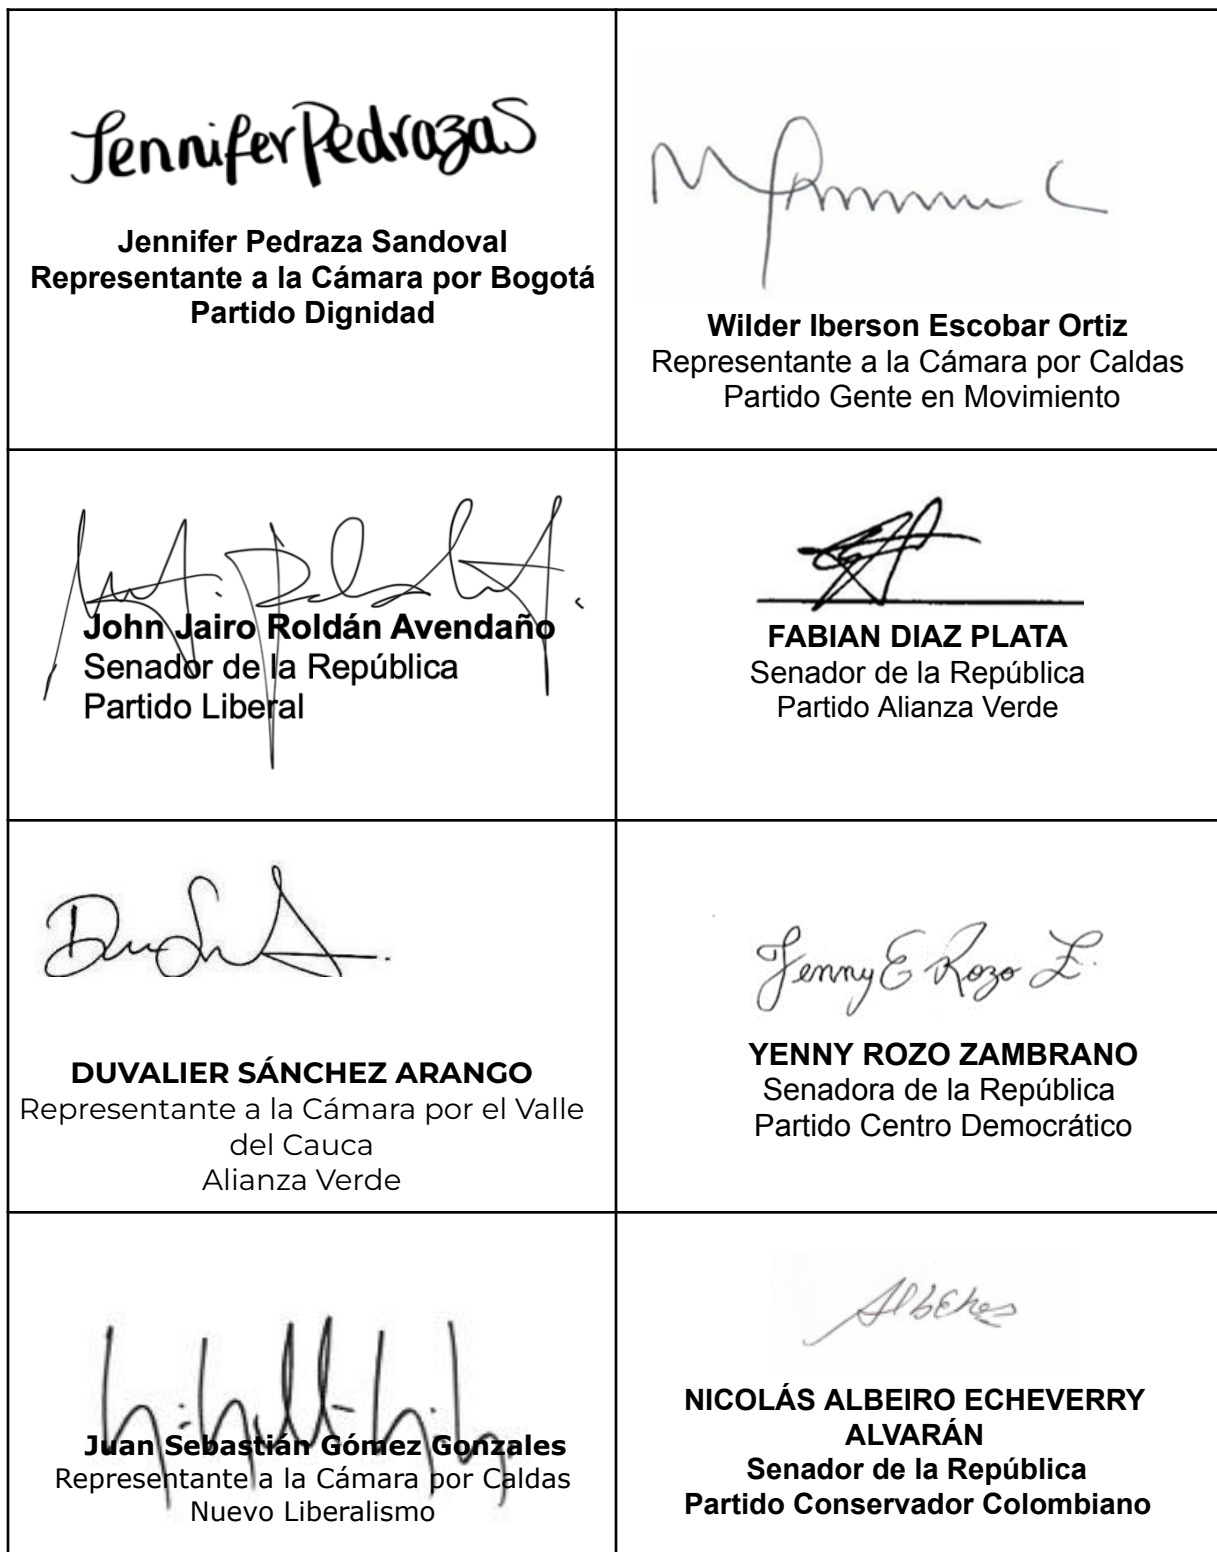 Jennifer PedrazaS
Jennifer Pedraza Sandoval
Representante a la Cámara por Bogotá
Partido Dignidad
Wilder Iberson Escobar Ortiz
Representante a la Cámara por Caldas
Partido Gente en Movimiento
John Jairo Roldán Avendaño
Senador de la República
Partido Liberal
FABIAN DIAZ PLATA
Senador de la República
Partido Alianza Verde
DUVALIER SÁNCHEZ ARANGO
Representante a la Cámara por el Valle
del Cauca
Alianza Verde
Yenny E Rozo Z.
YENNY ROZO ZAMBRANO
Senadora de la República
Partido Centro Democrático
Juan Sebastián Gómez Gonzales
Representante a la Cámara por Caldas
Nuevo Liberalismo
NICOLÁS ALBEIRO ECHEVERRY
ALVARÁN
Senador de la República
Partido Conservador Colombiano